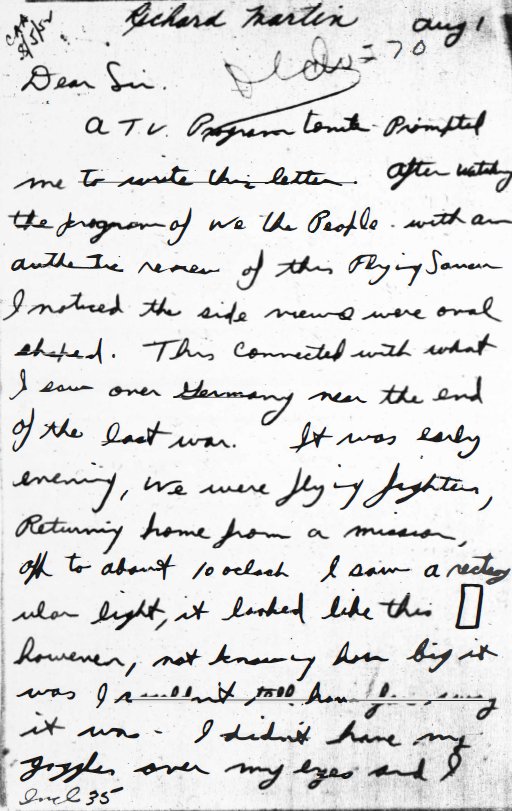 Richard Martin Aug 1
8/5/52
= 70
Dear Sir.
A T.V. Program tonite Prompted
me to write this letter. After watching
the program of We the People. with an
authentic review of this Flying Saucer
I noticed the side views were oval
shaped. This connected with what
I saw over Germany near the end
of the last war. It was early
evening, We were flying fighters,
Returning home from a mission,
off to about 10 oclock I saw a rectang
ular light, it looked like this
however, not knowing how big it
was I couldn't tell how
it was - I didn't have my
goggles over my eyes and I
Incl 35